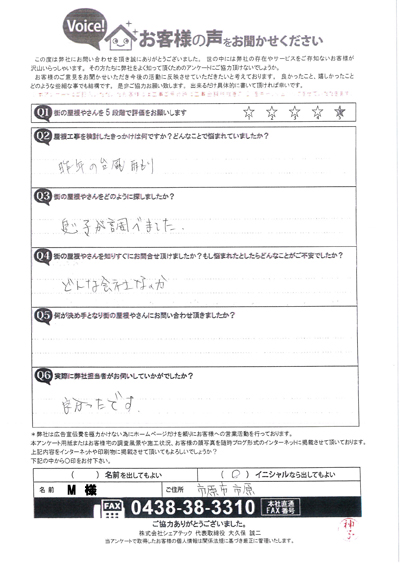 Voice!
お客様の声をお聞かせください
この度は弊社にお問い合わせを頂き誠にありがとうございました。世の中には弊社の存在やサービスをご存知ないお客様が
沢山いらっしゃいます。その方たちに弊社をよく知って頂くためのアンケートにご協力頂けないでしょうか。
お客様のご意見をお聞かせいただき今後の活動に反映させていただきたいと考えております。良かったこと、嬉しかったこと
どのような些細な事でも結構です。是非ご協力お願い致します。出来るだけ具体的に書いて頂ければ幸いです。
Q1 街の屋根やさんを5段階で評価をお願いします ☆ ☆ ☆ ☆ ★
Q2 屋根工事を検討したきっかけは何ですか？どんなことで悩まれていましたか？
昨年の台風
Q3 街の屋根やさんをどのように探しましたか？
息子が調べました.
Q4 街の屋根やさんを知りすぐにお問合せ頂けましたか？もし悩まれたとしたらどんなことがご不安でしたか？
どんな会社なのか
Q5 何が決め手となり街の屋根やさんにお問い合わせ頂きましたか？
Q6 実際に弊社担当者がお伺いしていかがでしたか？
良かったです.
＊弊社は広告宣伝費を極力かけない為にホームページだけを頼りにお客様への営業活動を行っております。
本アンケート用紙またはお客様宅の調査風景や施工状況、お客様の顔写真を随時ブログ形式のインターネットに掲載させて頂いております。
上記内容をインターネットや印刷物に掲載させて頂いてもよろしいでしょうか？
下記の中から〇印をお付下さい。
（ ）名前を出してもよい （○）イニシャルなら出してもよい
名前 M 様 ご住所 市原市 市原
FAX 0438-38-3310 本社直通 FAX番号
ご協力ありがとうございました。
株式会社シェアテック 代表取締役 大久保 誠二
当アンケートで取得したお客様の個人情報は関係法規に基づき厳正に管理いたします。